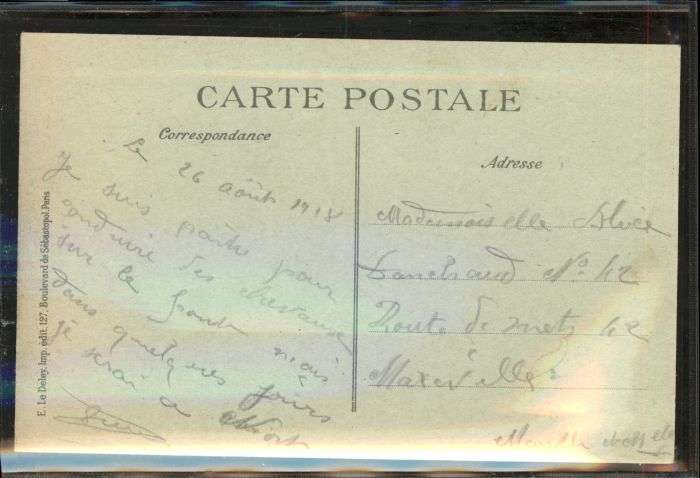 CARTE POSTALE
Correspondance
Adresse
Le 26 août 1918
Je suis partis pour
conduire des chevaux
sur le front mais
dans quelques jours
je serai a Niort
Mademoiselle Alice
No 42
Route de metz 42
Maxéville
E. Le Deley, Imp. édit. 127, Boulevard de Sébastopol, Paris